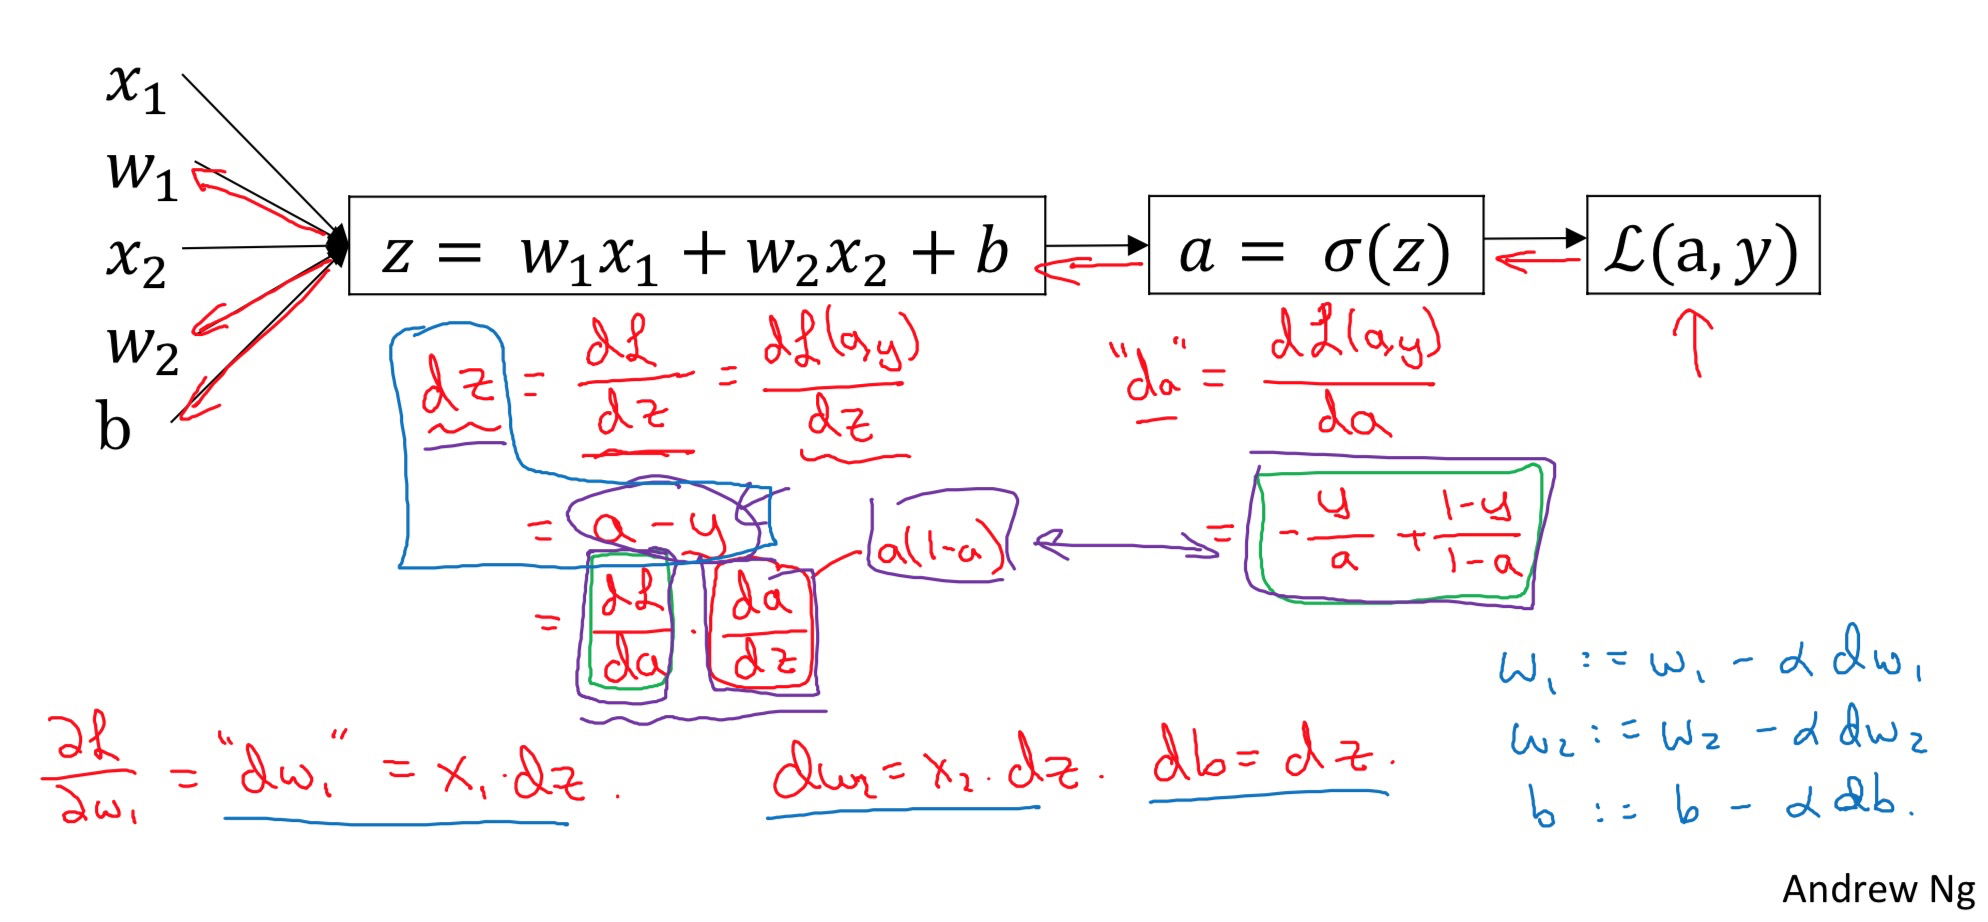 x₁
w₁
x₂
w₂
b
z = w₁x₁ + w₂x₂ + b
a = σ(z)
ℒ(a, y)
dz = dℒ/dz = dℒ(a,y)/dz
"da" = dℒ(a,y)/da
= a - y
a(1-a)
= - y/a + (1-y)/(1-a)
= dℒ/da · da/dz
∂ℒ/∂w₁ = "dw₁" = x₁·dz.
dw₂ = x₂·dz.
db = dz.
w₁ := w₁ - α dw₁
w₂ := w₂ - α dw₂
b := b - α db.
Andrew Ng